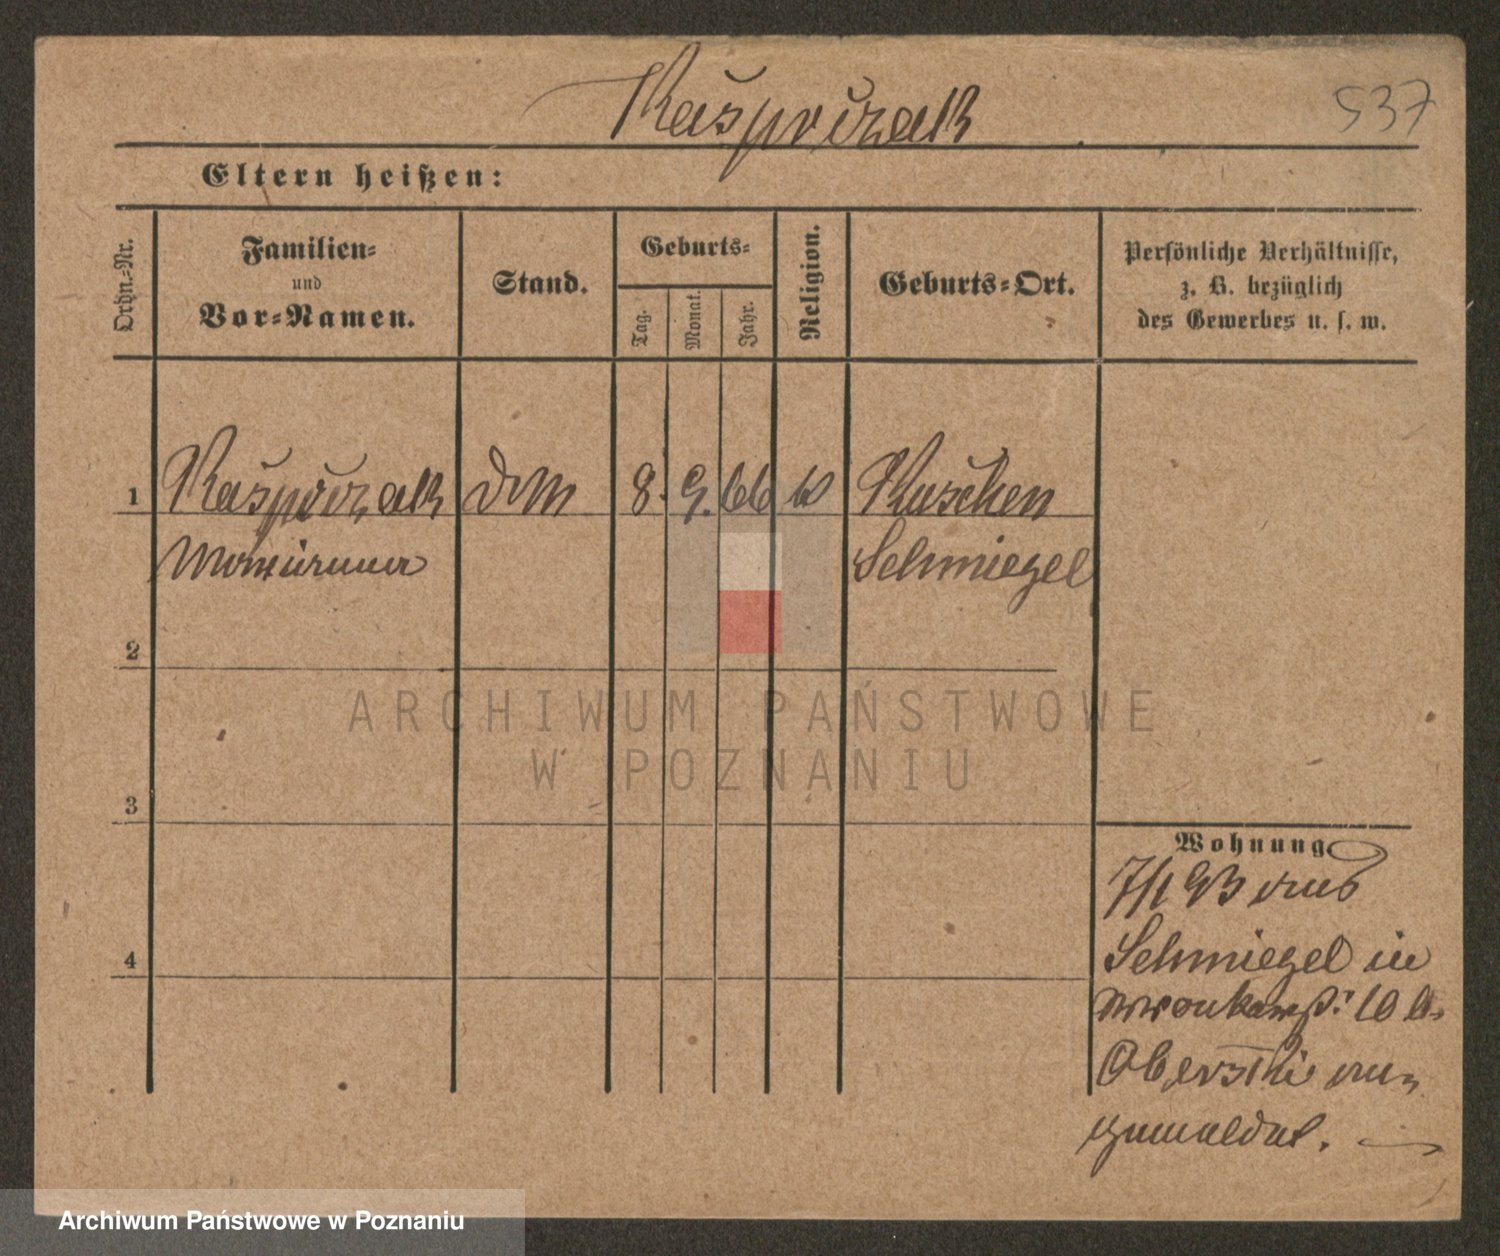 Kasprzak
537
Eltern heißen:
Ordn.-Nr.
Familien-
und
Vor-Namen.
Stand.
Geburts-
Tag.
Monat.
Jahr.
Religion.
Geburts-Ort.
Persönliche Verhältnisse,
z. B. bezüglich
des Gewerbes u. s. w.
1 Kasprzak 8. 9. 66 k Kuschen
Marianna Schmiegel
2
3
4
Wohnung
7/1 93 aus
Schmiegel in
10 b.
an-
gemeldet.
ARCHIWUM PAŃSTWOWE
W POZNANIU
Archiwum Państwowe w Poznaniu